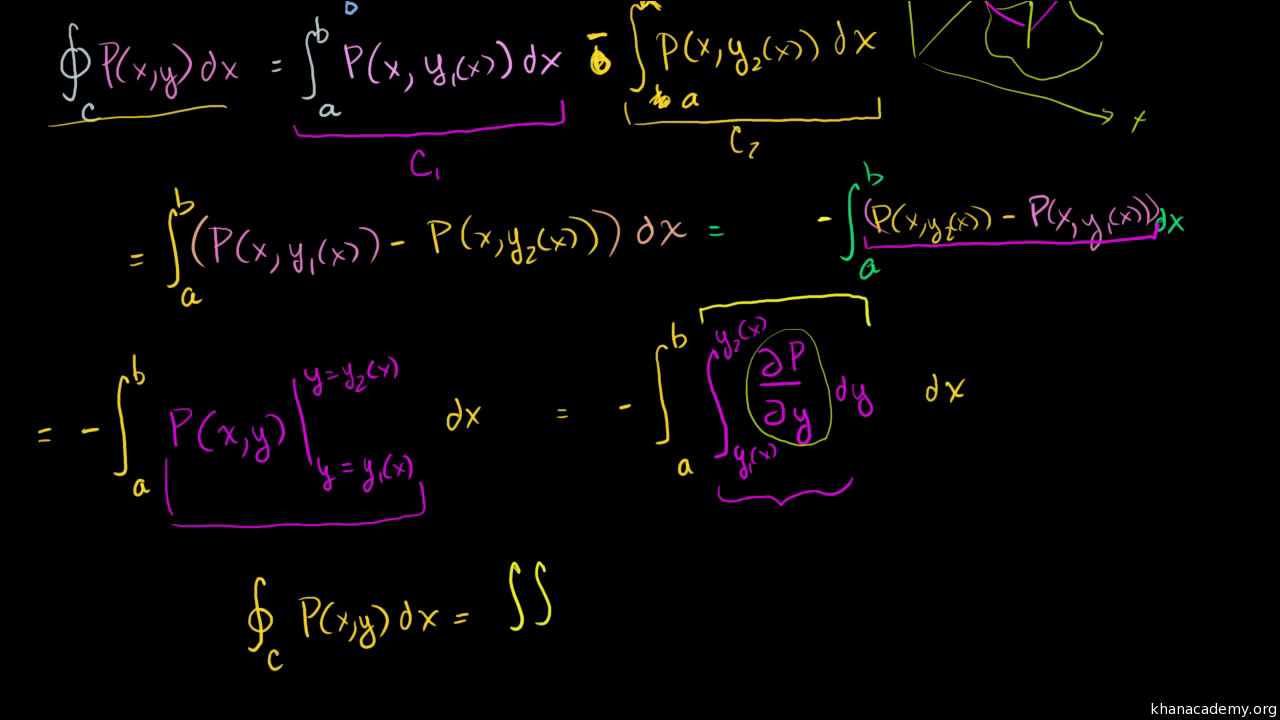 ∮_C P(x,y) dx = ∫_a^b P(x, y₁(x)) dx − ∫_a P(x, y₂(x)) dx
x
C₁ C₂
= ∫_a^b (P(x, y₁(x)) − P(x, y₂(x))) dx = − ∫_a^b (P(x, y₂(x)) − P(x, y₁(x))) dx
= − ∫_a^b P(x,y) |_{y = y₁(x)}^{y = y₂(x)} dx = − ∫_a^b ∫_{y₁(x)}^{y₂(x)} ∂P/∂y dy dx
∮_C P(x,y) dx = ∫∫
khanacademy.org